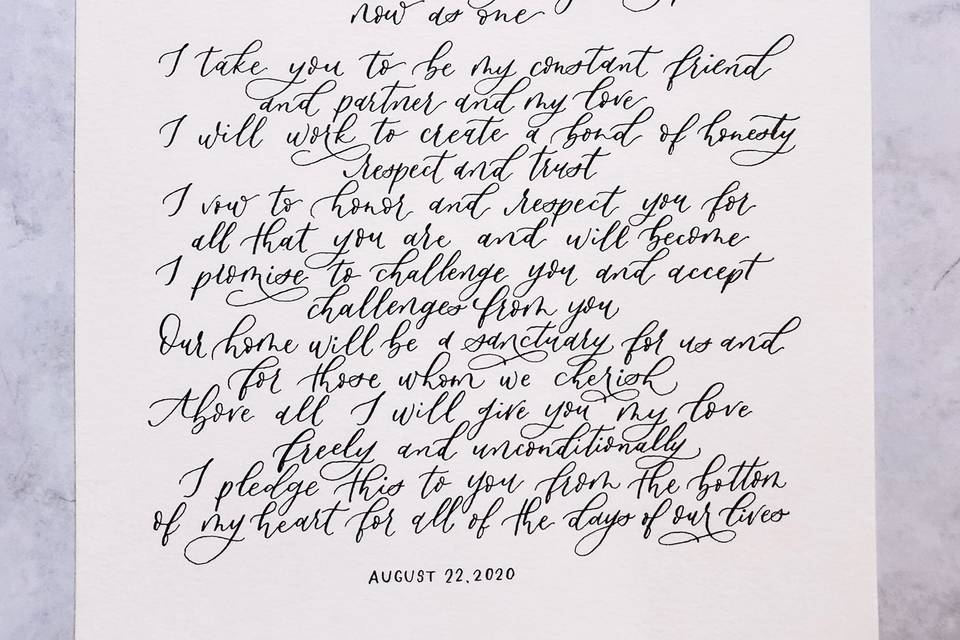 now as one
I take you to be my constant friend
and partner and my love
I will work to create a bond of honesty
respect and trust
I vow to honor and respect you for
all that you are and will become
I promise to challenge you and accept
challenges from you
Our home will be a sanctuary for us and
for those whom we cherish
Above all I will give you my love
freely and unconditionally
I pledge this to you from the bottom
of my heart for all of the days of our lives
AUGUST 22, 2020